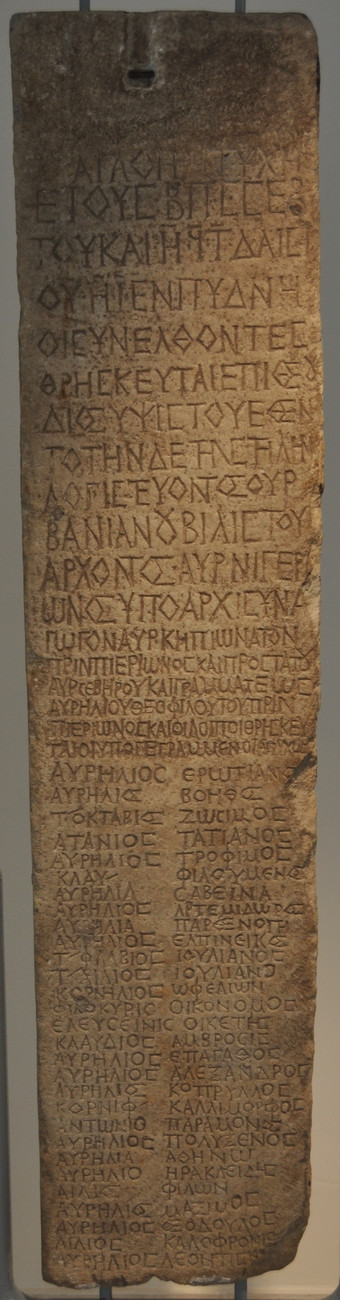 ΑΓΑΘΗ ΤΥΧΗ
ΕΤΟΥΣ ΒΠΣ ΣΕΒ
ΤΟΥ ΚΑΙ ΗϤΤ ΔΑΙΣΙ
ΟΥ ΗΙ ΕΝ ΠΥΔΝΗ
ΟΙ ΣΥΝΕΛΘΟΝΤΕΣ
ΘΡΗΣΚΕΥΤΑΙ ΕΠΙ ΘΕΟΥ
ΔΙΟΣ ΥΨΙΣΤΟΥ ΕΘΕΝ
ΤΟ ΤΗΝΔΕ ΤΗ ΣΤΗΛΗ
ΛΟΓΙΣΤΕΥΟΝΤΟΣ ΟΥΡ
ΒΑΝΙΑΝΟΥ ΒΙΛΙΣΤΟΥ
ΑΡΧΟΝΤΟΣ ΑΥΡ ΝΙΓΕΡΙ
ΩΝΟΣ ΥΠΟ ΑΡΧΙΣΥΝΑ
ΓΩΓΟΝ ΑΥΡ ΚΗΠΙΩΝΑ ΤΟΝ
ΠΡΙΝ ΠΙΕΡΙΩΝΟΣ ΚΑΙ ΠΡΟΣΤΑΤΟΥ
ΑΥΡ ΣΕΒΗΡΟΥ ΚΑΙ ΓΡΑΜΜΑΤΕΩΣ
ΑΥΡΗΛΙΟΥ ΘΕΟΦΙΛΟΥ ΤΟΥ ΠΡΙΝ
ΠΙΕΡΙΩΝΟΣ ΚΑΙ ΟΙ ΛΟΙΠΟΙ ΘΡΗΣΚΕΥ
ΤΑΙ ΟΙ ΥΠΟΓΕΓΡΑΜΜΕΝΟΙ
ΑΥΡΗΛΙΟΣ ΕΡΩΤΙΑΝΟΣ
ΑΥΡΗΛΙΟΣ ΒΟΗΘΟΣ
Π ΟΚΤΑΒΙΣ ΖΩΣΙΜΟΣ
ΑΤΑΝΙΟΣ ΤΑΤΙΑΝΟΣ
ΑΥΡΗΛΙΟΣ ΤΡΟΦΙΜΟΣ
ΚΛΑΥ ΦΙΛΟΥΜΕΝΟΣ
ΑΥΡΗΛΙΑ ΣΑΒΕΙΝΑ
ΑΥΡΗΛΙΟΣ ΑΡΤΕΜΙΔΩΡΟΣ
ΠΑΡΕΝΟΥ
ΑΥΡΗΛΙΟΣ ΕΛΠΙΝΕΙΚΟΣ
Τ ΦΛΑΒΙΟΣ ΙΟΥΛΙΑΝΟΣ
ΙΟΥΛΙΑΝΟ
ΚΟΡΝΗΛΙΟΣ ΩΦΕΛΙΩΝ
ΦΙΛΟΚΥΡΙΣ ΟΙΚΟΝΟΜΟΣ
ΕΛΕΥΣΕΙΝΙΣ ΟΙΚΕΤΗΣ
ΚΛΑΥΔΙΟΣ ΑΜΒΡΟΣΙΣ
ΑΥΡΗΛΙΟΣ ΕΠΑΓΑΘΟΣ
ΑΥΡΗΛΙΟΣ ΑΛΕΞΑΝΔΡΟΣ
ΑΥΡΗΛΙΣ ΚΟΠΡΥΛΛΟΣ
ΚΟΡΝΙΦ ΚΑΛΛΙΜΟΡΦΟΣ
ΑΝΤΩΝΙΟ ΠΑΡΑΜΟΝΟΣ
ΑΥΡΗΛΙΟΣ ΠΟΛΥΞΕΝΟΣ
ΑΥΡΗΛΙΑ ΑΘΗΝΩ
ΑΥΡΗΛΙΟ ΗΡΑΚΛΕΙΔΗΣ
ΑΙΛΙΣ ΦΙΛΩΝ
ΑΥΡΗΛΙΣ ΜΑΞΙΜΟΣ
ΑΥΡΗΛΙΟΣ ΕΞΟΔΟΥΛΟΣ
ΑΙΛΙΟΣ ΚΑΛΟΦΡΟΝΙΣ
ΑΥΡΗΛΙΟΣ ΛΕΟΝΤΙΣ